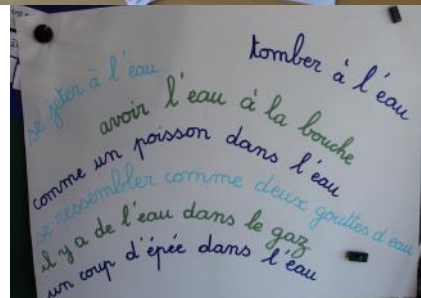 se jeter à l'eau
tomber à l'eau
avoir l'eau à la bouche
comme un poisson dans l'eau
se ressembler comme deux gouttes d'eau
il y a de l'eau dans le gaz
un coup d'épée dans l'eau